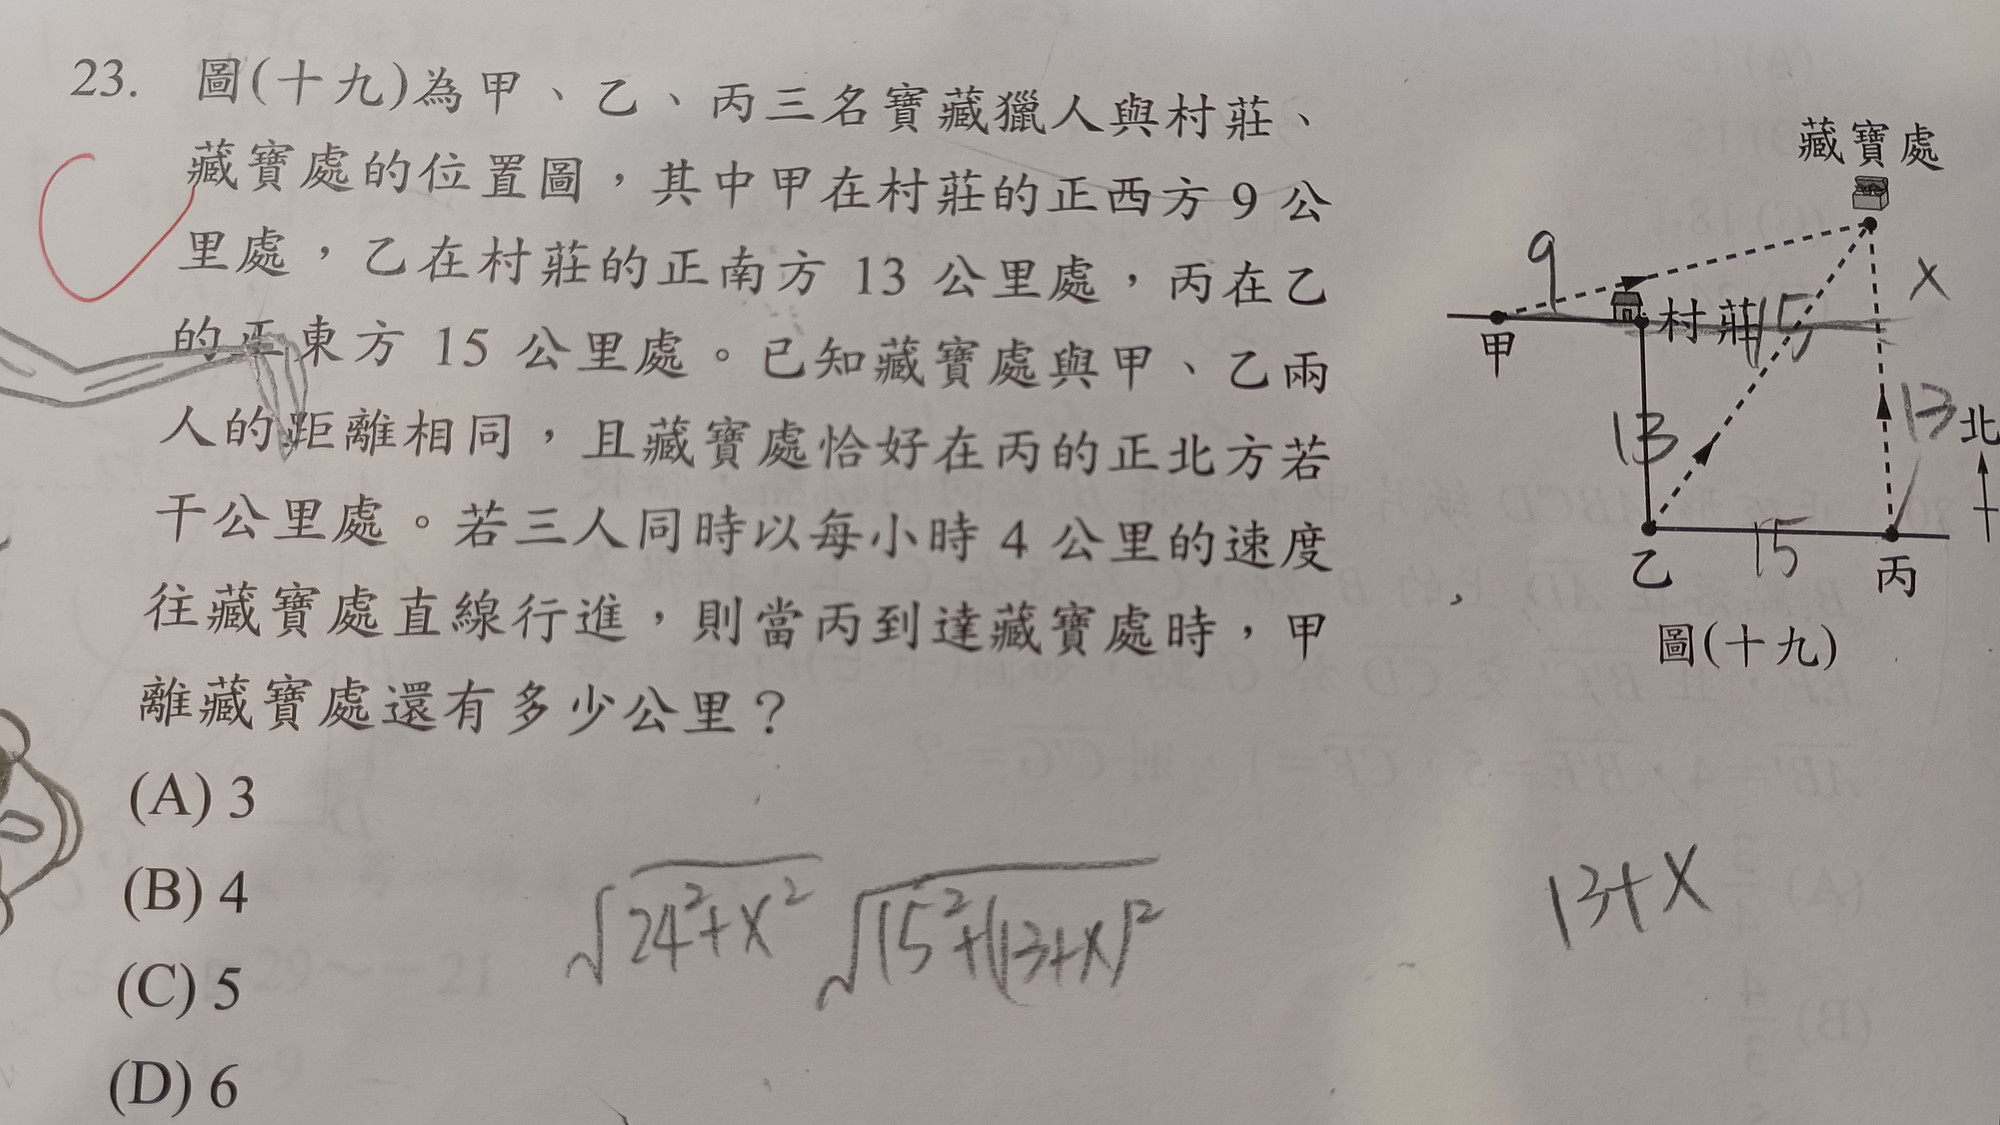 23. 圖(十九)為甲、乙、丙三名寶藏獵人與村莊、
藏寶處的位置圖，其中甲在村莊的正西方 9 公
里處，乙在村莊的正南方 13 公里處，丙在乙
的正東方 15 公里處。已知藏寶處與甲、乙兩
人的距離相同，且藏寶處恰好在丙的正北方若
干公里處。若三人同時以每小時 4 公里的速度
往藏寶處直線行進，則當丙到達藏寶處時，甲
離藏寶處還有多少公里？
(A) 3
(B) 4
(C) 5
(D) 6
√24²+x² √15²+(13+x)²
13+x
藏寶處
9
x
村莊
15
甲
13
13
北
15
乙
丙
圖(十九)